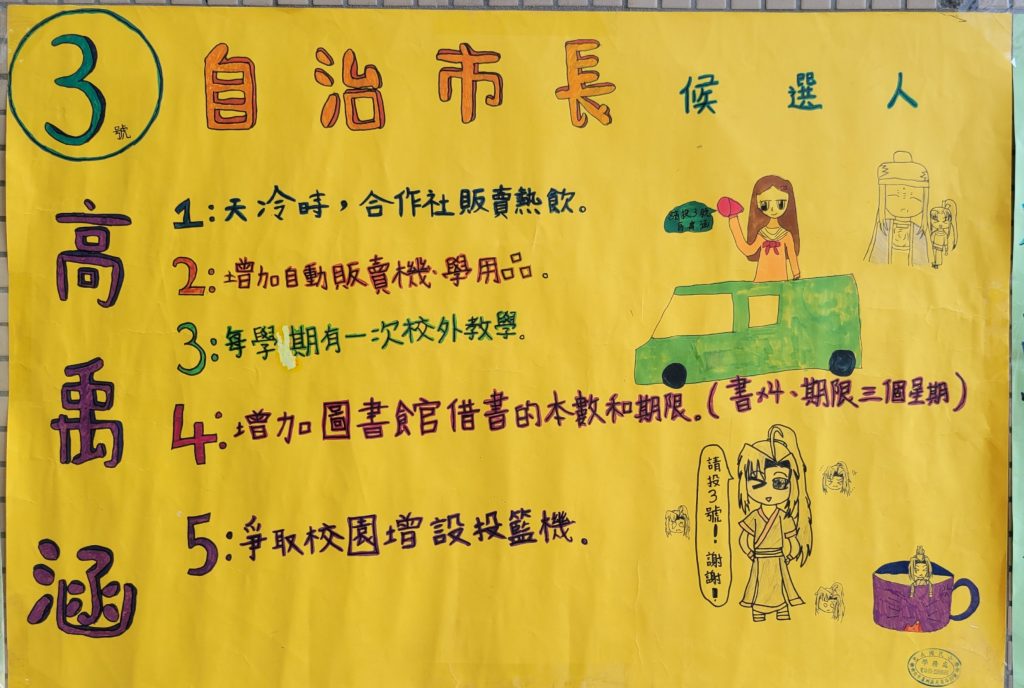 3號
自治市長 候選人
高禹涵
1:天冷時，合作社販賣熱飲。
2:增加自動販賣機、學用品。
3:每學期有一次校外教學。
請投3號
高禹涵
4:增加圖書館借書的本數和期限。(書x4、期限三個星期)
請投3號!謝謝!
5:爭取校園增設投籃機。
學務處